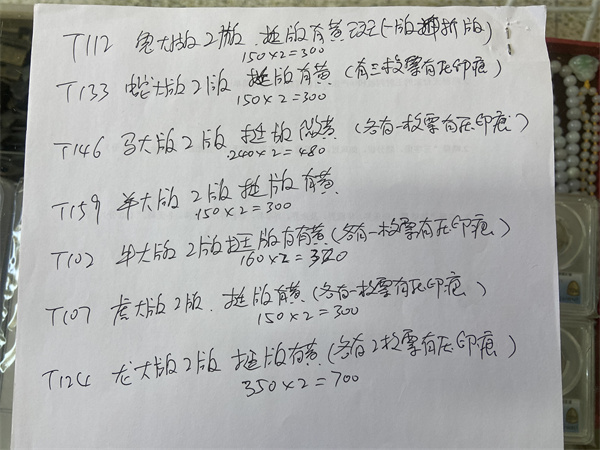 T112 兔大版2版 挺版有黄斑(一版拆版)
150×2=300
T133 蛇大版2版 挺版有黄(有三枚票有压印痕)
150×2=300
T146 马大版2版 挺版微黄(各有一枚票有压印痕)
240×2=480
T159 羊大版 2版 挺版有黄
150×2=300
T102 牛大版 2版挺版有有黄(各有一枚票有压印痕)
160×2=320
T107 虎大版2版. 挺版有黄(各有一枚票有压印痕)
150×2=300
T124 龙大版2版 挺版有黄(各有2枚票有压印痕)
350×2=700